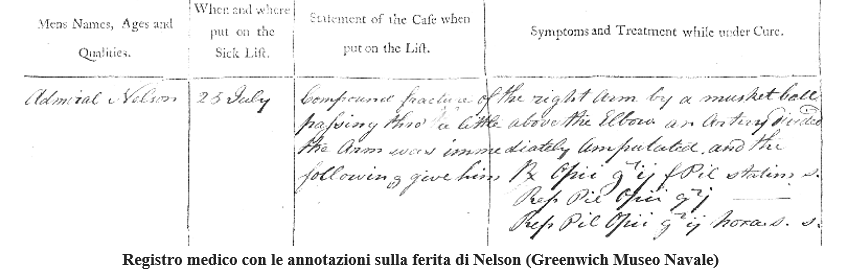 Mens Names, Ages and Qualities.
When and where put on the Sick Liſt.
Statement of the Caſe when put on the Liſt.
Symptoms and Treatment while under Cure.
Admiral Nelson 25 July Compound fracture of the right Arm by a musket ball
passing thro' a little above the Elbow an Artery divided
the Arm was immediately amputated and the
following give him ℞ Opii gr ij f Pil statim s.
Rep Pil Opii gr j
Rep Pil Opii gr ij hora s. s.
Registro medico con le annotazioni sulla ferita di Nelson (Greenwich Museo Navale)